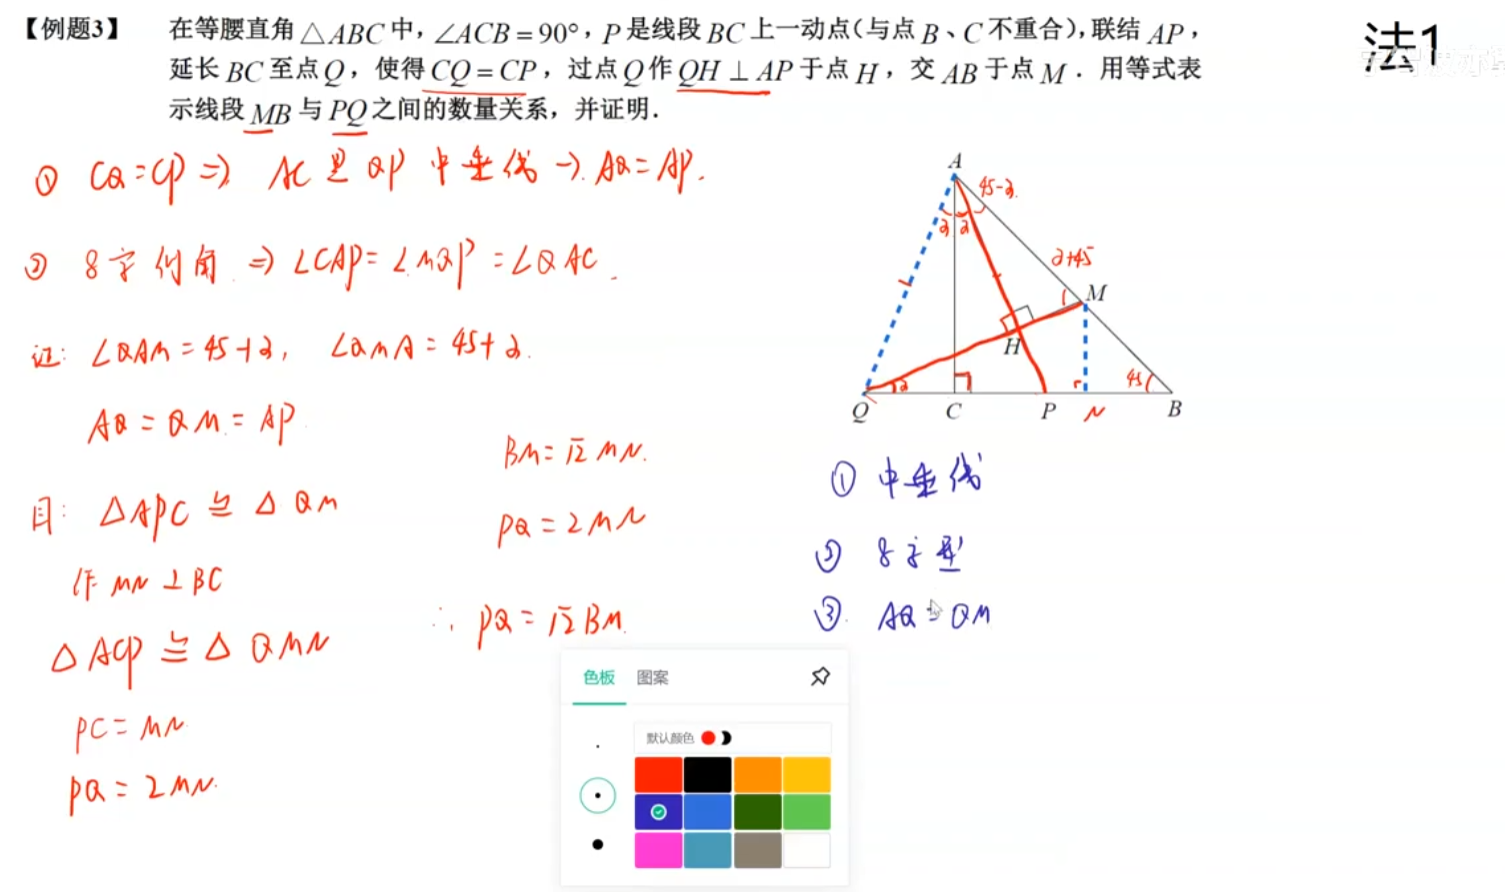 【例题3】 在等腰直角△ABC中，∠ACB=90°，P是线段BC上一动点(与点B、C不重合)，联结AP，
延长BC至点Q，使得CQ=CP，过点Q作QH⊥AP于点H，交AB于点M．用等式表
示线段MB与PQ之间的数量关系，并证明．
法1
① CQ=CP ⇒ AC是QP中垂线 → AQ=AP.
② 8字倒角 ⇒ ∠CAP=∠MQP=∠QAC.
证: ∠QAM=45+2, ∠QMA=45+2.
AQ=QM=AP
目: △APC≌△QM
作MN⊥BC
△ACP≌△QMN
PC=MN
PQ=2MN.
BM=√2MN.
PQ=2MN
∴PQ=√2BM.
A
45-2.
2 2
2+45
M
H
2
45
Q C P N B
① 中垂线
② 8字型
③. AQ=QM
色板 图案
默认颜色